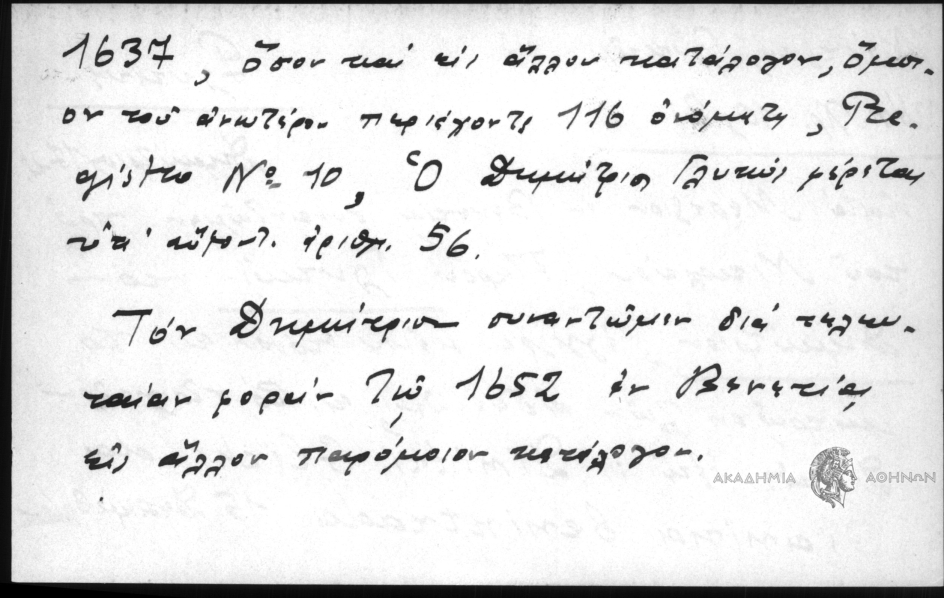 1637, ὅσον καί εἰς ἄλλον κατάλογον, ὅμοι-
ον τοῦ ἀνωτέρω περιέχοντα 116 ὀνόματα, Re-
gistro Nº 10, Ὁ Δημήτριος Γλυκύς φέρεται
ὑπ' αὔξοντ. ἀριθμ. 56.
Τόν Δημήτριον συναντῶμεν διά τελευ-
ταίαν φοράν τῷ 1652 ἐν Βενετίᾳ
εἰς ἄλλον παρόμοιον κατάλογον.
ΑΚΑΔΗΜΙΑ ΑΘΗΝΩΝ